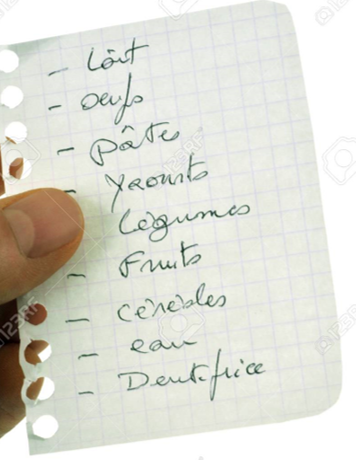 - Lait
- oeufs
- pâtes
- Yaourts
Légumes
- Fruits
- céréales
- eau
- Dentifrice